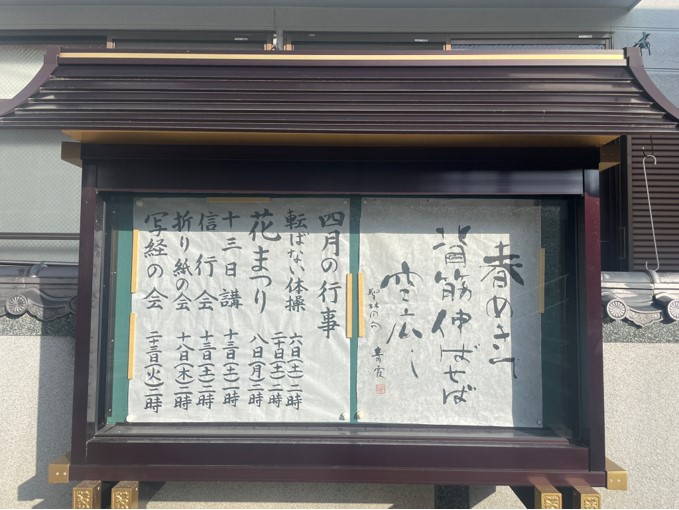 春めきて
背筋伸ばせば
空広し
四月の行事
転ばない体操 六日(土)二時
二十日(土)二時
花まつり 八日(月)二時
十三日講 十三日(土)一時
信行会 十三日(土)二時
折り紙の会 十八日(木)二時
写経の会 二十三日(火)二時